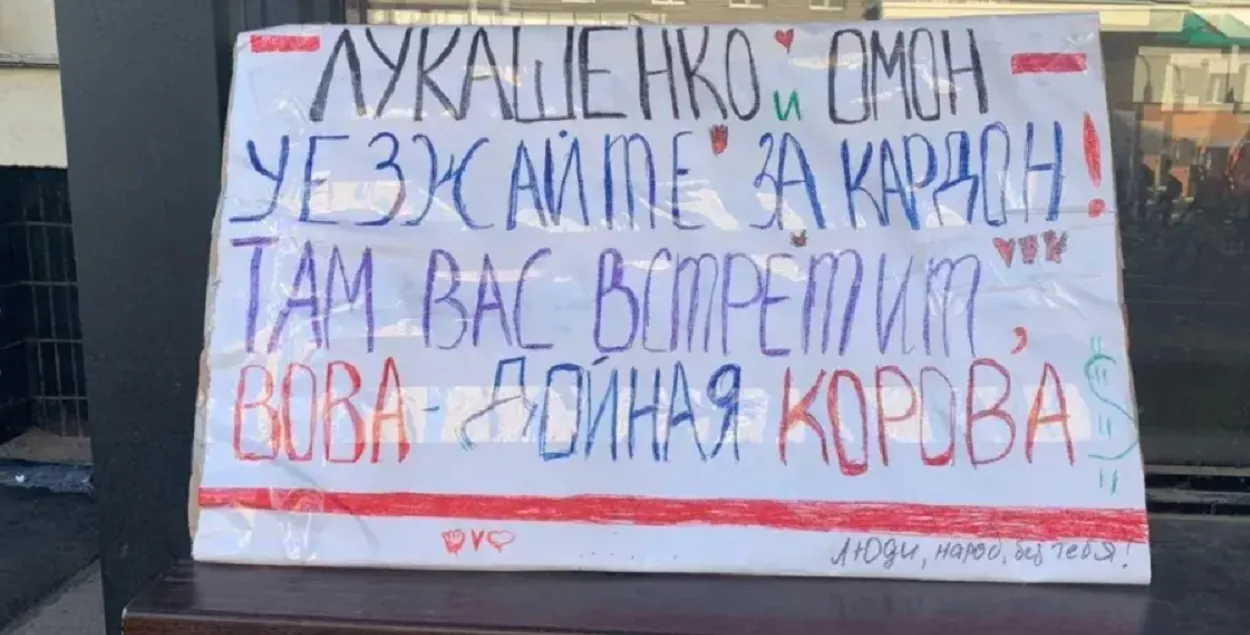 ЛУКАШЕНКО и ОМОН
УЕЗЖАЙТЕ ЗА КАРДОН!
ТАМ ВАС ВСТРЕТИТ,
ВОВА - ДОЙНАЯ КОРОВА $
Люди, народ, без тебя!